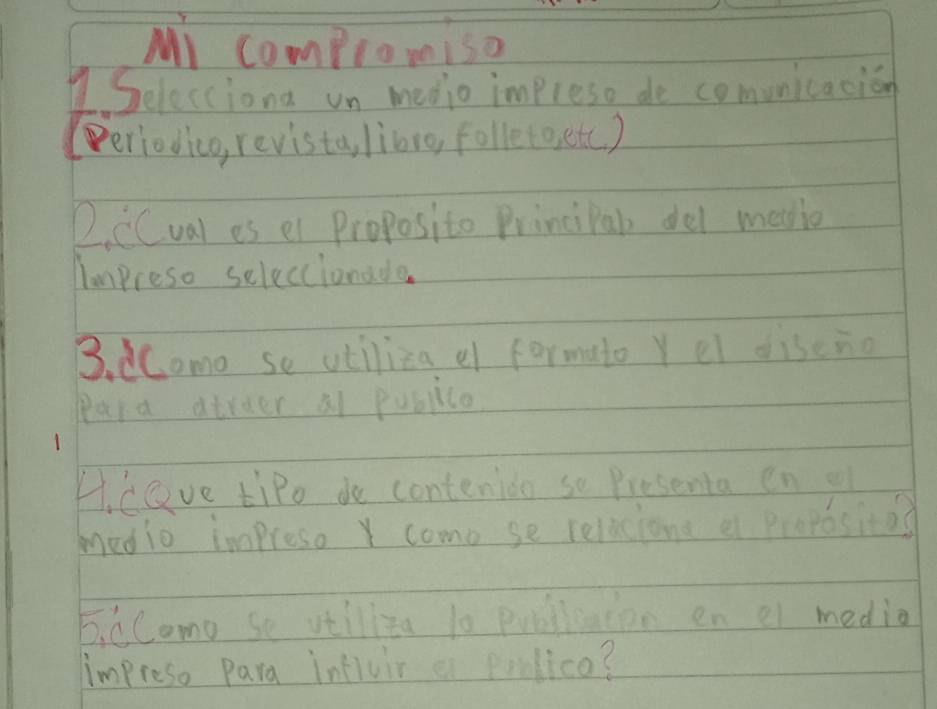 Mi compromiso
1. Selecciona un medio impreso de comunicación
(Periodico, revista, libro, folleto, etc)
2. ¿Cual es el Proposito Principal del medio
impreso seleccionado.
3. ¿Como se utiliza el formato Y el diseño
Para atraer al publico
1
4. ¿Que tipo de contenido se Presenta en el
medio impreso Y como se relaciona el Propósito?
5. ¿Como se utiliza la publicacion en el medio
impreso para influir el publico?